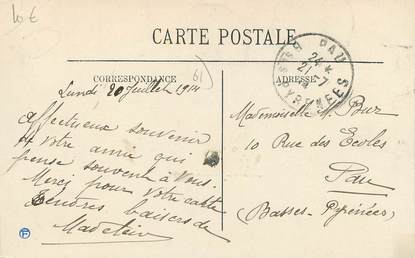 10 €
CARTE POSTALE
61
CORRESPONDANCE
ADRESSE
Lundi 20 Juillet 1914
Affectueux souvenir
de votre amie qui
pense souvent à Vous.
Merci pour votre carte
Tendres baisers de
Madelein
PAU
24 *
21 -7
PYRENEES
Mademoiselle M. Buz
10 Rue des Ecoles
Pau
(Basses-Pyrénées)
F